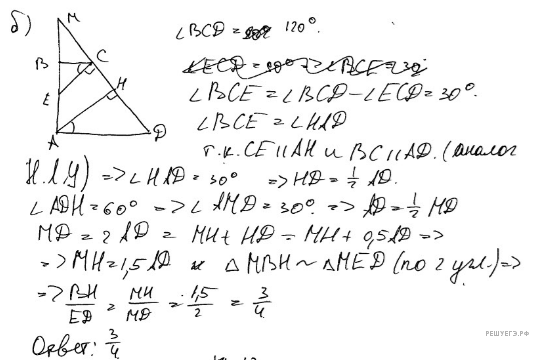 б)
M
B
C
E
H
A
D
∠BCD = 120°.
∠BCE = ∠BCD − ∠ECD = 30°.
∠BCE = ∠HAD
т.к. CE ∥ AH и BC ∥ AD. (аналог
Н.Л.У) => ∠HAD = 30° => HD = 1/2 AD.
∠ADH = 60° => ∠AMD = 30° => AD = 1/2 MD
MD = 2AD = MH + HD = MH + 0,5AD =>
=> MH = 1,5AD и △MBH ~ △MED (по 2 угл.) =>
=> BH/ED = MH/MD = 1,5/2 = 3/4
Ответ: 3/4
РЕШУЕГЭ.РФ